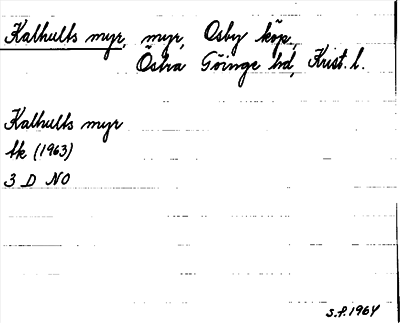 Kalhults myr, myr, Osby köp,
Östra Göinge hd, Krist. l.
Kalhults myr
tk (1963)
3 D NO
S.P. 1964